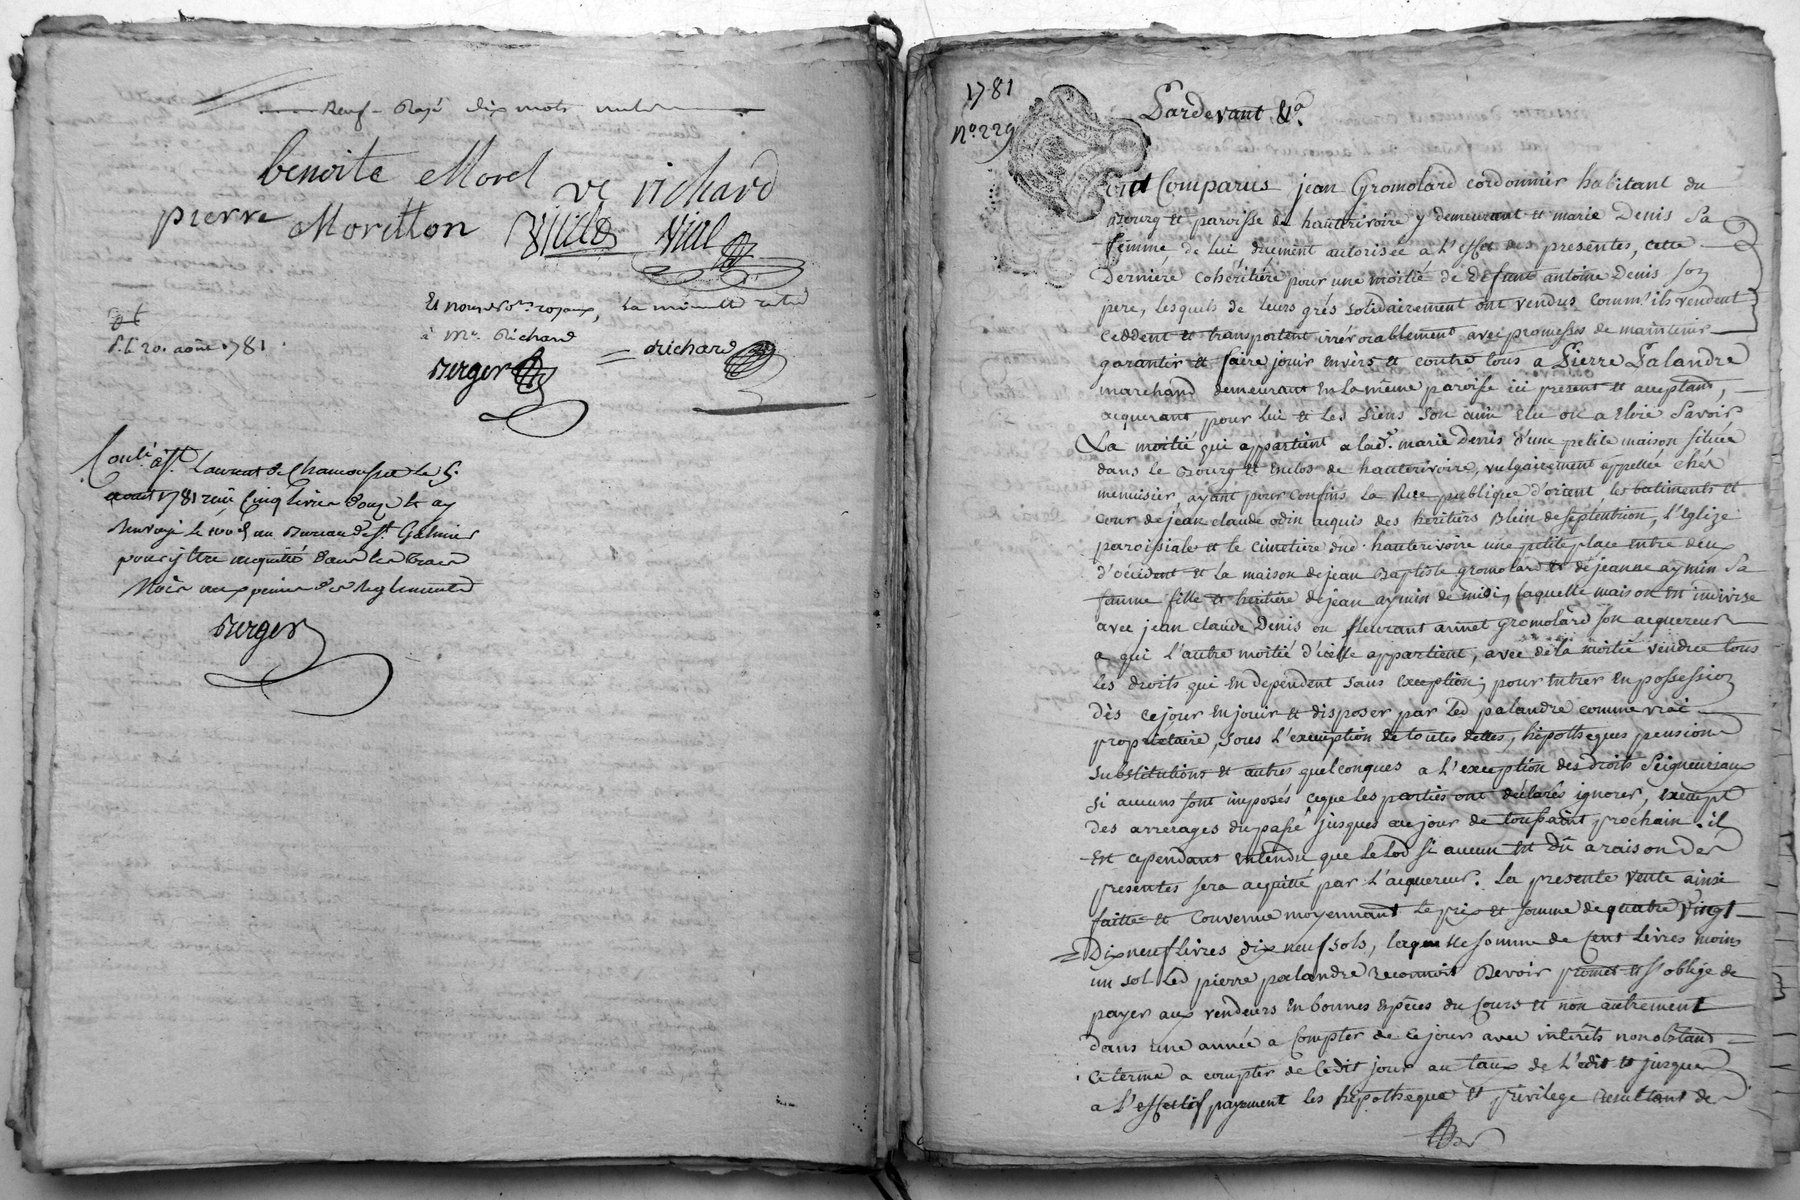 neuf Rayé dix mots nuls
benoite Morel ve richard
pierre Morillon Viale Vial
Et nous No.res royaux, La minutte resté
à Mr. Richard
Berger richard
dt
d. le 20. aoûst 1781.
Conlé à St. Laurent de Chamousset Le 5.
aoust 1781 reçu Cinq livres douze s. et ay
Renvoyé Le au Bureau de St. Galmier
pour y être acquitté dans les trois
Mois aux peines des Reglements
Berger
1781
N°. 229
Pardevant &a.
ont Comparus jean Gromolard cordonnier habitant du
Bourg et paroisse de hauterivoire y demeurant et marie Denis Sa
femme de lui duement autorisée a L'effet des presentes, cette
Derniere cohéritiere pour une moitié de defunt antoine Denis son
pere, lesquels de leurs grés solidairement ont vendus comm'ils vendent
ceddent et transportent irrévocablement avec promesses de maintenir
garantir et faire jouir envers et contre tous a Pierre Palandre
marchand demeurant en la même paroisse ici present et acceptant,
acquerant pour lui et les siens son ami elu ou a Elire Savoir
La moitié qui appartient a lad.e marie Denis d'une petite maison située
dans le Bourg et Enclos de hauterivoire, vulgairement appellée chés
menuisier, ayant pour confins la Rue publique d'orient, les batiments et
cour de jean claude odin acquis des heritiers Blein de septentrion, L'Eglize
paroissiale et le cimetiere dud. hauterivoire une petite place entre deux
d'occident et la maison de jean Baptiste gromolard et de jeanne aymin Sa
femme fille et heritiere de jean aymin de midi, laquelle maison est indivise
avec jean claude Denis ou fleurant annet gromolard son acquereur
a qui L'autre moitié d'icelle appartient, avec de la moitié vendue tous
les droits qui en dependent sans exception; pour entrer en possession
dès cejour en jouir et disposer par led palandre comme vrai
propriétaire, sous L'exemption de toutes dettes, hipotheques pensions
substitutions et autres quelconques a l'exception des droits Seigneuriaux
si aucuns sont imposés ceque les parties ont déclarés ignorer, exempt
des arrerages du passé jusques aujour de toussaint prochain. il
Est cependant entendu que le lod si aucun est dû a raison des
presentes sera acquitté par L'acquereur. La presente vente ainsi
faitte et convenue moyennant le prix et somme de quatre vingt
Dixneuf livres dixneuf sols, laquelle somme de Cent livres moins
un sol led pierre palandre reconnoit Devoir promet et s'oblige de
payer aux vendeurs en bonnes espéces du cours et non autrement
dans une année a compter de ce jours avec intérêts nonobstant
ce terme a compter de cedit jour au taux de l'edit et jusques
a L'effectif payement les hipotheque et privilege resultant de